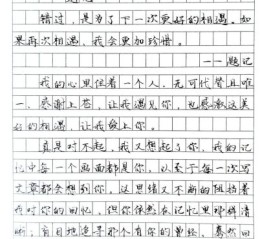 错过，是为了下一次更好的相遇。如
果再次相遇，我会更加珍惜。
——题记
我的心里住着一个人，无可代替且唯
一。感谢上苍，让我遇见你，也感谢这美
好的相遇，让我爱上你。
真是对不起，我又想起了你，我的记
忆中每一个画面都是你，以至于每一次写
文章都会想到你，这思绪又不断的阻挡着
我对你的回忆。但你依然在记忆里那样清
晰，盲目地追寻那个有你的曾经。蓦然回